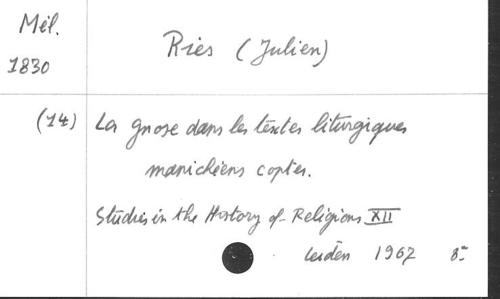 Mél.
1830
Ries (Julien)
(14) La gnose dans les textes liturgiques
manichéens coptes.
Studies in the History of Religions XII
Leiden 1967 8°